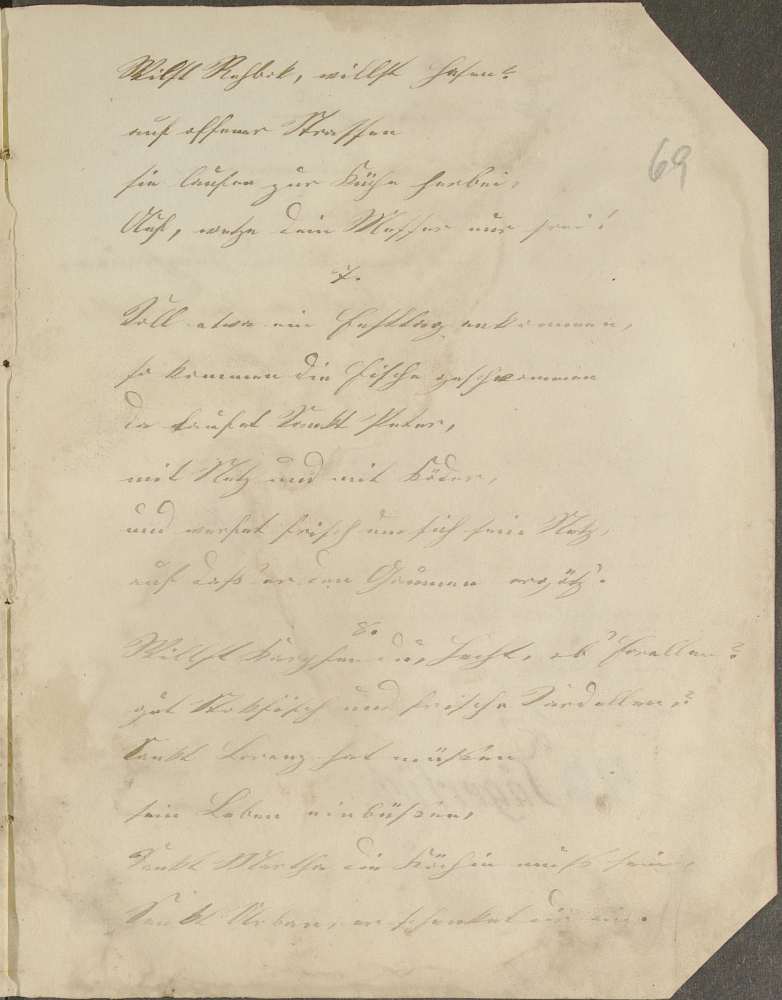 Willst Rehbok, willst Hasen?
69
auf offener Strassen
sie laufen zur Küche herbei,
Auf, wetze dein Messer nur frei!
7.
Soll etwa ein Festtag ankommen,
so kommen die Fische geschwommen
da laufet Sankt Peter,
mit Netz und mit Köder,
und werfet frisch um sich sein Netz,
auf daß er den Gaumen ergötz'.
8.
Willst Karpfen du, Hecht, ob' Forellen?
gut Stokfisch und frische Sardellen?
Sankt Lorenz hat müssen
sein Leben einbüssen,
Sankt Martha die Köchin muß sein,
Sankt Urban, er schenket dir ein.